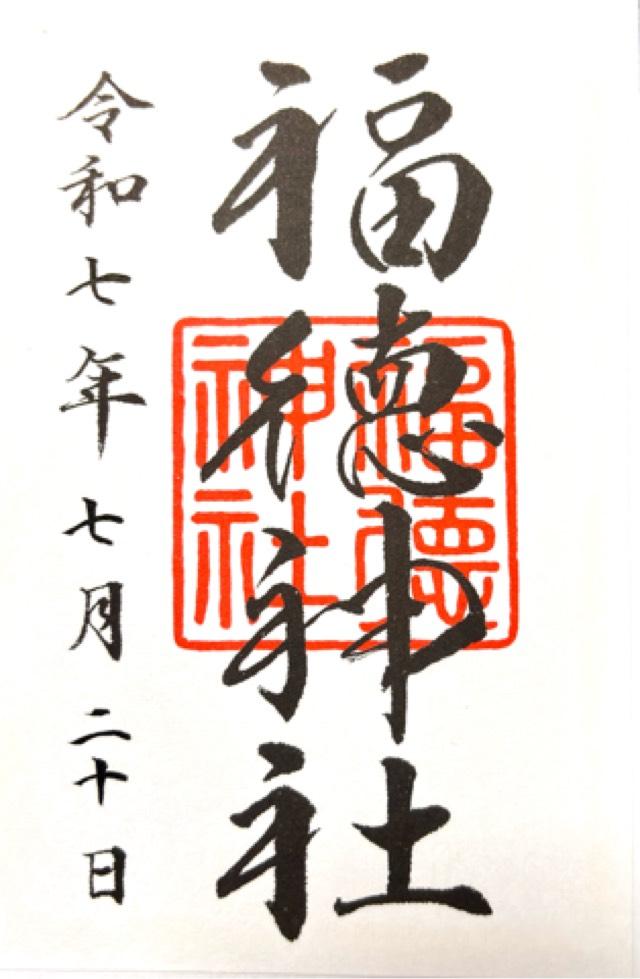 福徳神社
福徳神社
令和七年七月二十日